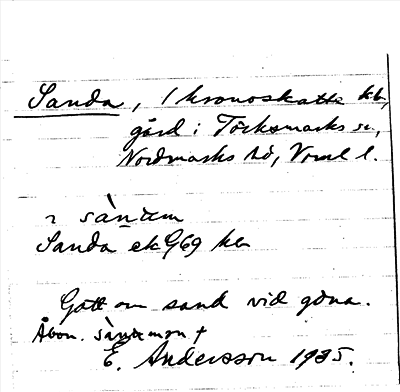 Sanda, 1 kronoskatte hb,
gård i Töcksmarks sn,
Nordmarks hd, Vrml l.
sànnum
Sanda ek G69
Gott om sand vid gdna.
Åbon. sànnmon †
E. Andersson 1935.